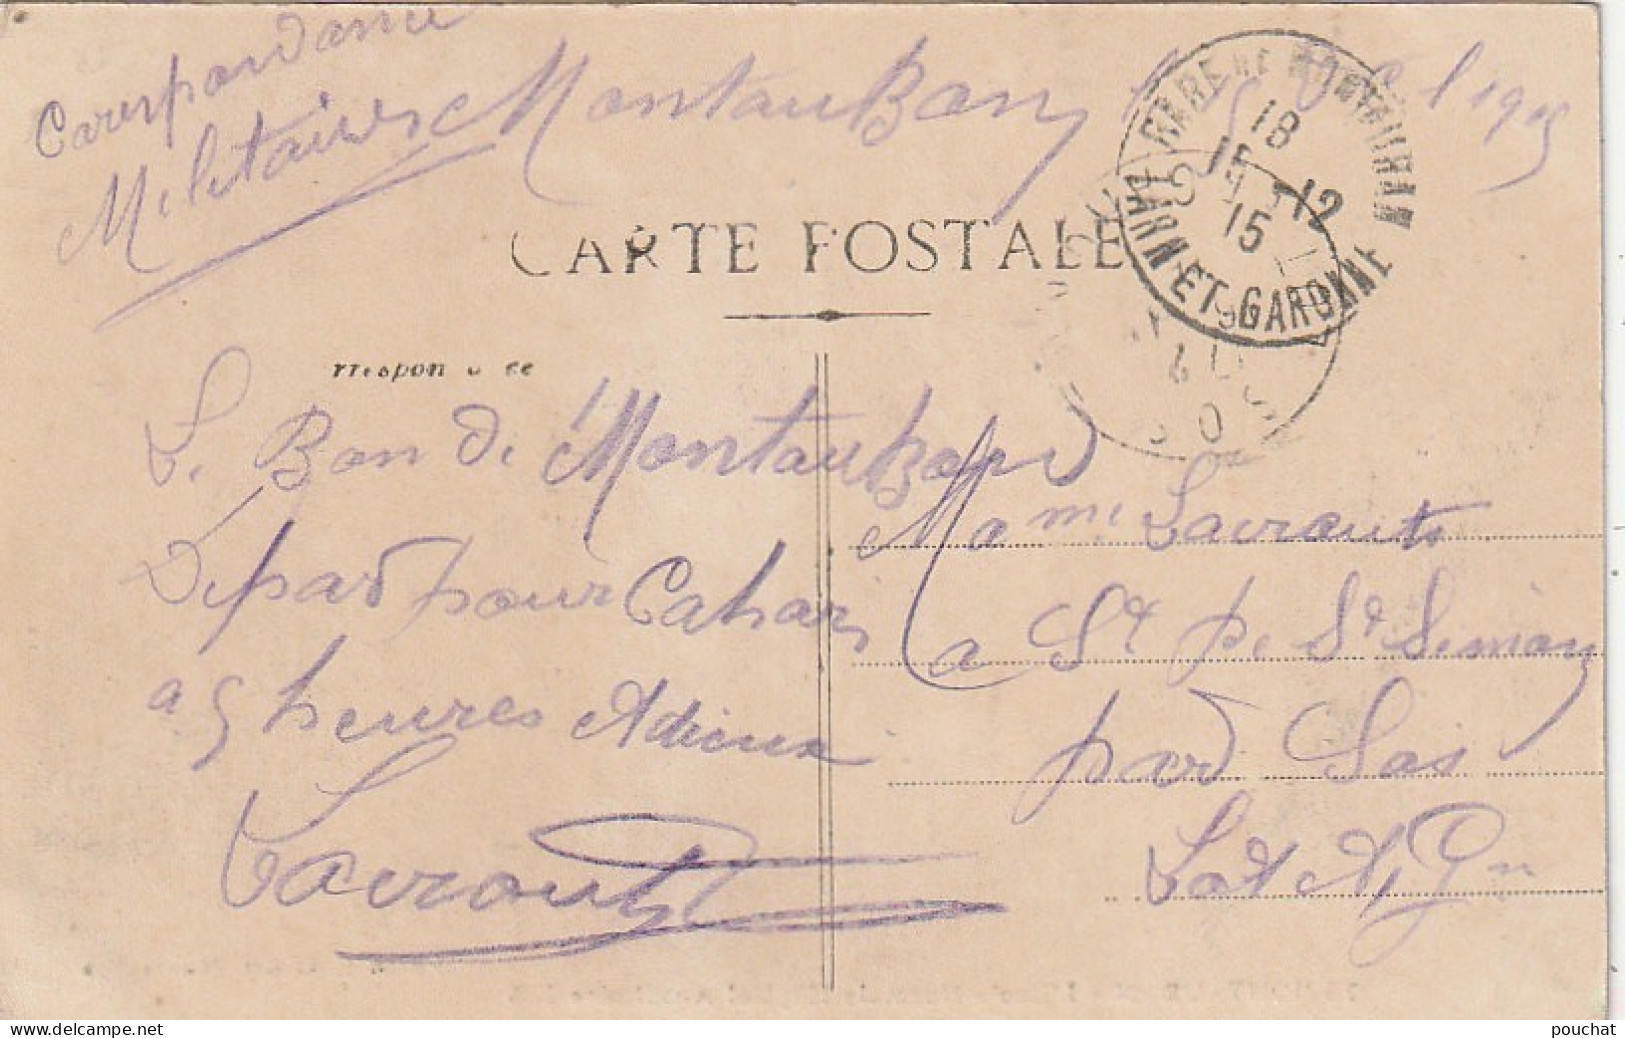 Corespondance
Militaires Montauban 1915
GARE DE MONTAUBAN
18
15 -12
15
TARN-ET-GARONNE
CARTE POSTALE
rrespon ce
Le Bon de Montauban
Départ pour Cahors
a 5 heures Adieux
Lavrouts
Mame Lavrouts
a St pe St Simon
pard Sas
Lot et Gne
pouchat